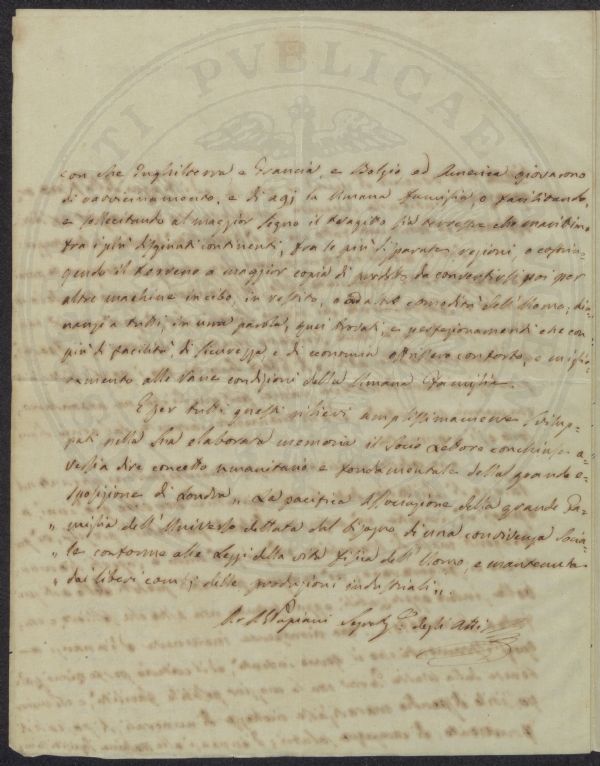 con che Inghilterra e Francia, e Belgio ed America giovarono
di ravvicinamento, e di agj la Umana famiglia o facilitando,
e sollecitando al maggior segno il tragitto sia terrestre che marittimo
fra i più disgiunti continenti, fra le più disparate regioni, o costrin-
gendo il terreno a maggior copia di prodotti da convertirsi poi per
altre machine in cibo, in vestito, o ad altre comodità dell'Uomo; di-
nanzi a tutti, in una parola, quei trovati, e perfezionamenti che con
più di facilità, di sicurezza, e di economia offrissero conforto, e miglio-
ramento alle varie condizioni della Umana Famiglia.
E per tutti questi rilievi amplissimamente svilup-
pati nella sua elaborata memoria il Socio Lettore conchiuse a-
versia dire concetto umanitario e fondamentale della grande e-
sposizione di Londra „ La pacifica Associazione della grande Fa-
„ miglia dell'Universo dettata dal bisogno di una convivenza Socia-
„ le conforme alle Leggi della vita fisica dell'Uomo, e mantenuta
„ dai liberi cambj delle produzioni industriali „.
Papiani Segret.º degli Atti
PVBLICAE